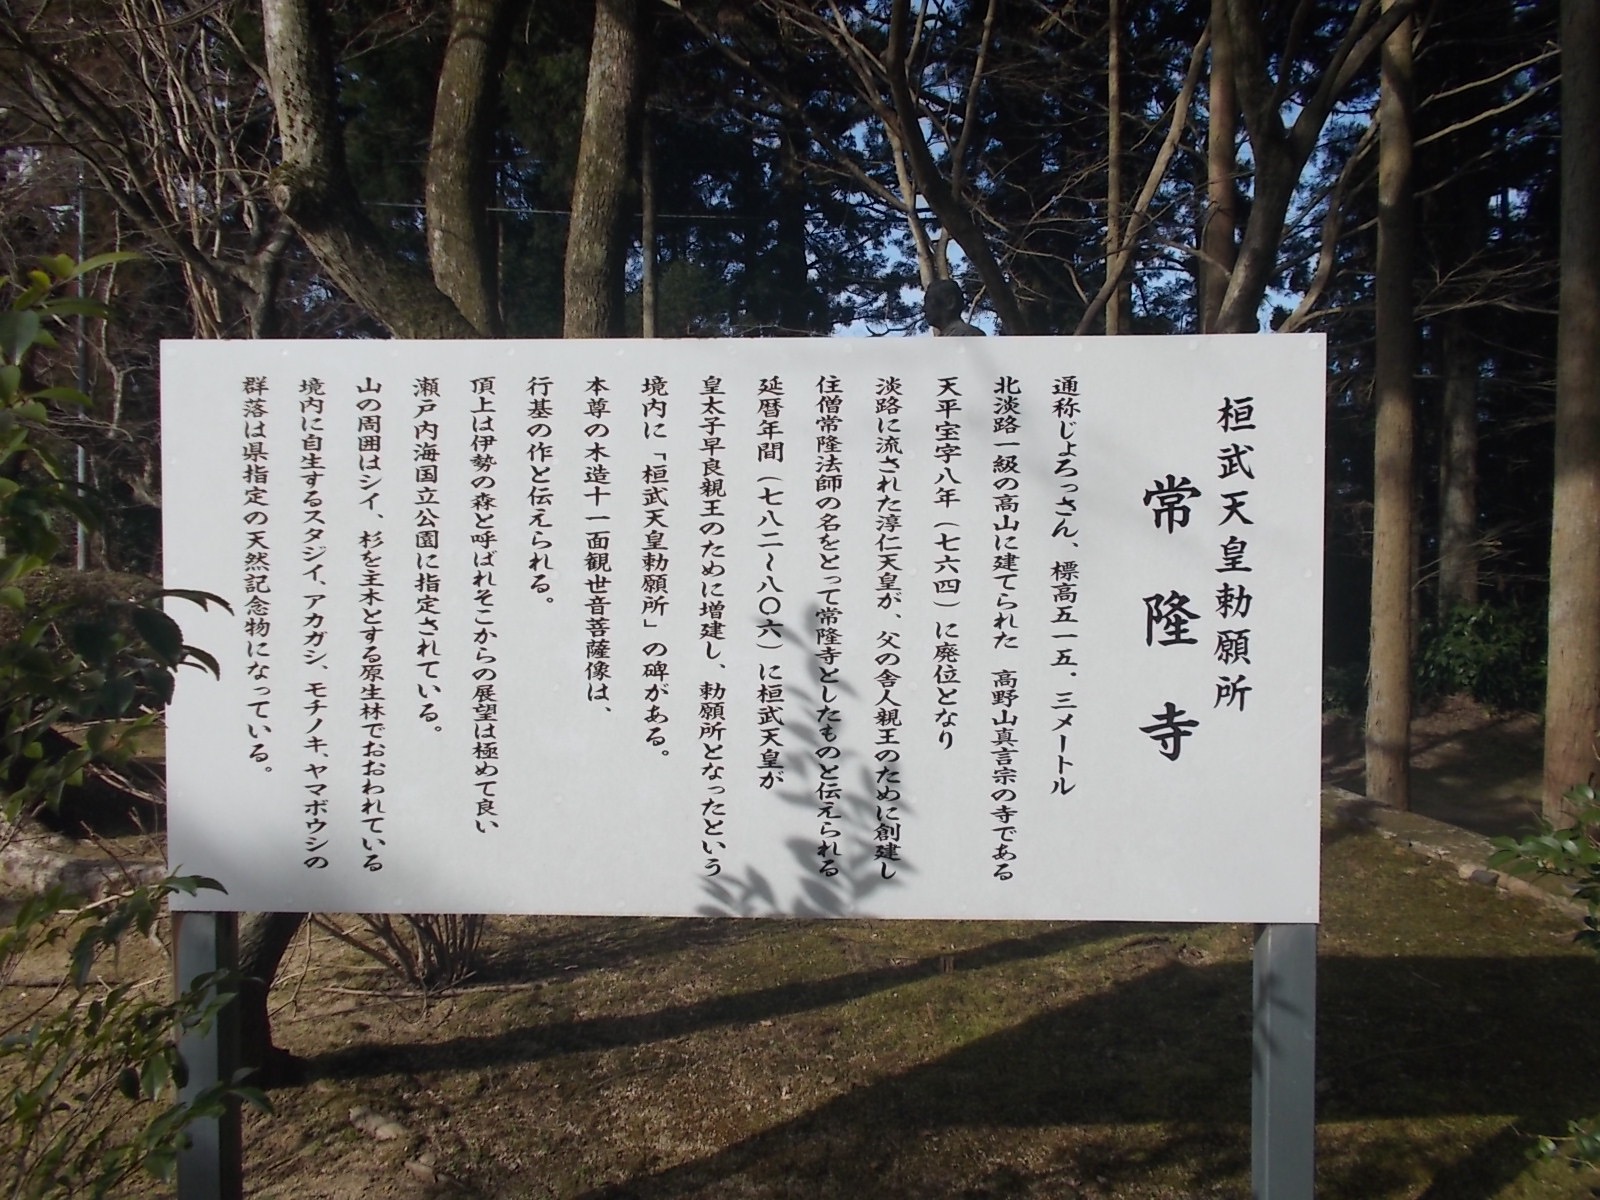 桓武天皇勅願所
常隆寺
通称じょろっさん、標高五一五.三メートル
北淡路一級の高山に建てられた　高野山真言宗の寺である
天平宝字八年（七六四）に廃位となり
淡路に流された淳仁天皇が、父の舎人親王のために創建し
住僧常隆法師の名をとって常隆寺としたものと伝えられる
延暦年間（七八二～八〇六）に桓武天皇が
皇太子早良親王のために増建し、勅願所となったという
境内に「桓武天皇勅願所」の碑がある。
本尊の木造十一面観世音菩薩像は、
行基の作と伝えられる。
頂上は伊勢の森と呼ばれそこからの展望は極めて良い
瀬戸内海国立公園に指定されている。
山の周囲はシイ、杉を主木とする原生林でおおわれている
境内に自生するスタジイ、アカガシ、モチノキ、ヤマボウシの
群落は県指定の天然記念物になっている。